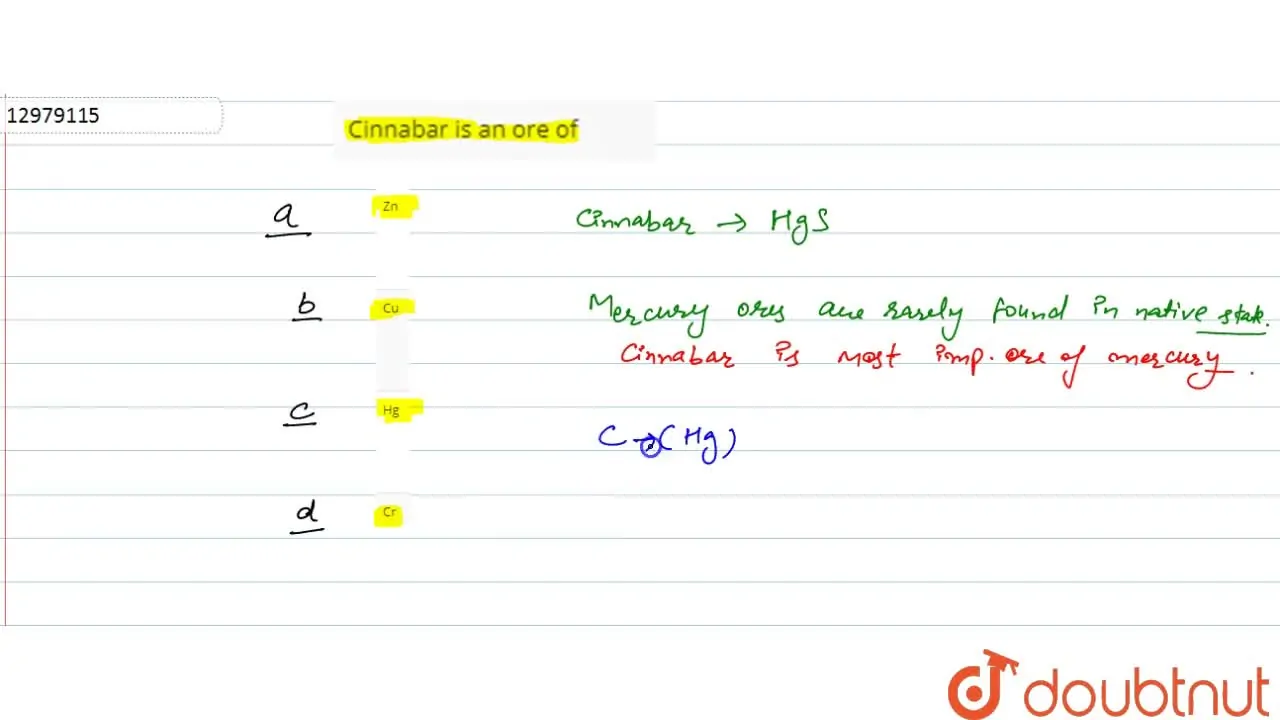 12979115
Cinnabar is an ore of
a Zn
Cinnabar → HgS
b Cu
Mercury ores are rarely found in native state.
Cinnabar is most imp. ore of mercury.
c Hg
C → (Hg)
d Cr
doubtnut